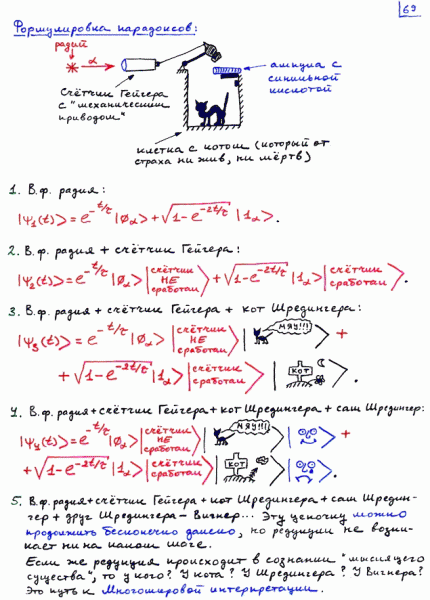 69
Формулировка парадоксов:
радий
α
Счётчик Гейгера
с "механическим
приводом"
ампула с
синильной
кислотой
клетка с котом (который от
страха ни жив, ни мёртв)
1. В.ф. радия:
|Ψ₁(t)> = e^{-t/τ} |0_α> + √(1-e^{-2t/τ}) |1_α>.
2. В.ф. радия + счётчик Гейгера:
|Ψ₂(t)> = e^{-t/τ} |0_α> |счётчик НЕ сработал> + √(1-e^{-2t/τ}) |1_α> |счётчик сработал>.
3. В.ф. радия + счётчик Гейгера + кот Шредингера:
|Ψ₃(t)> = e^{-t/τ} |0_α> |счётчик НЕ сработал> | МЯУ!!! > +
+ √(1-e^{-2t/τ}) |1_α> |счётчик сработал> | КОТ >.
4. В.ф. радия + счётчик Гейгера + кот Шредингера + сам Шредингер:
|Ψ₄(t)> = e^{-t/τ} |0_α> |счётчик НЕ сработал> | МЯУ!!! > | > +
+ √(1-e^{-2t/τ}) |1_α> |счётчик сработал> | КОТ > | >.
5. В.ф. радия + счётчик Гейгера + кот Шредингера + сам Шредин-
гер + друг Шредингера – Вигнер... Эту цепочку можно
продолжить бесконечно далеко, но редукции не возни-
кает ни на каком шаге.
Если же редукция происходит в сознании "мыслящего
существа", то у кого? У кота? У Шредингера? У Вигнера?
Это путь к Многомировой интерпретации.